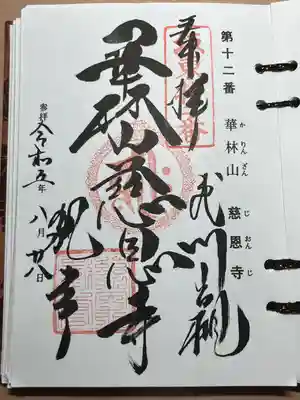 第十二番 華林山 慈恩寺
か りん ざん じ おん じ
奉拝 武州岩槻
華林山慈恩寺
執事
参拝 令和五年八月廿八日